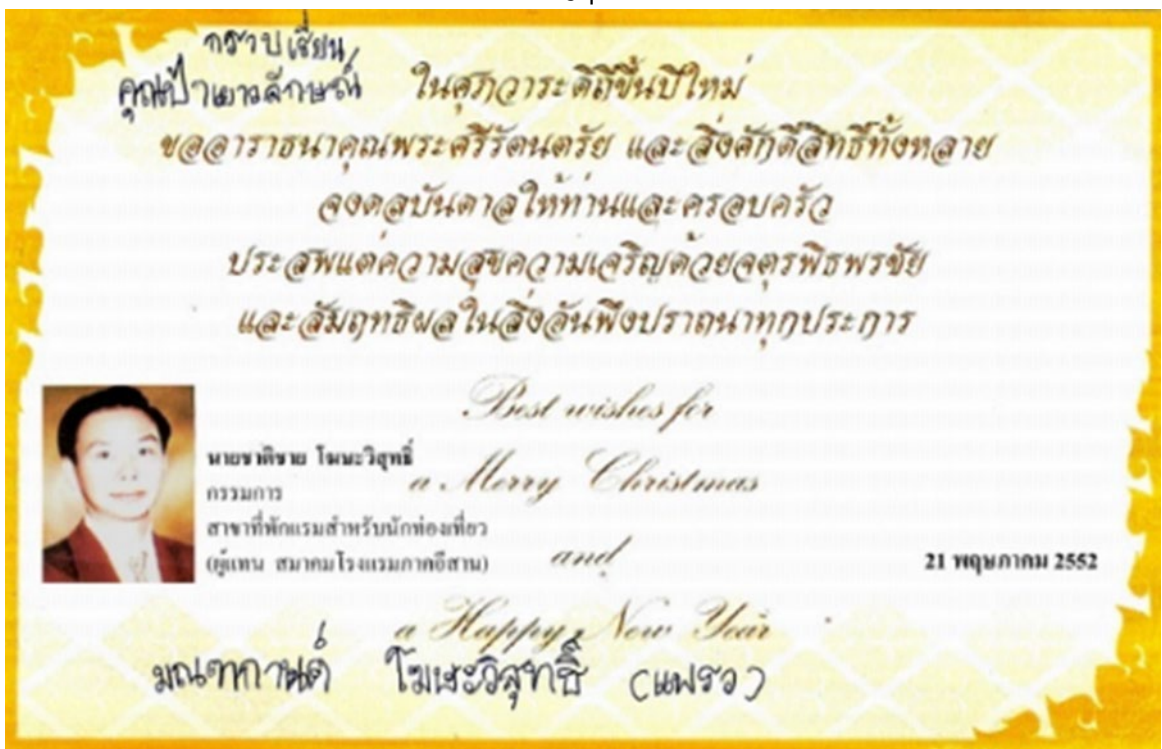 กราบเรียน
คุณป้าเยาวลักษณ์
ในศุภวาระดิถีขึ้นปีใหม่
ขออาราธนาคุณพระศรีรัตนตรัย และสิ่งศักดิ์สิทธิ์ทั้งหลาย
จงดลบันดาลให้ท่านและครอบครัว
ประสพแต่ความสุขความเจริญด้วยจตุรพิธพรชัย
และสัมฤทธิผลในสิ่งอันพึงปรารถนาทุกประการ
Best wishes for
นายชาติชาย โฆษะวิสุทธิ์
a Merry Christmas
กรรมการ
สาขาที่พักแรมสำหรับนักท่องเที่ยว
(ผู้แทน สมาคมโรงแรมภาคอีสาน)
and
21 พฤษภาคม 2552
a Happy New Year
มณฑกานต์ โฆษะวิสุทธิ์ (แพรว)